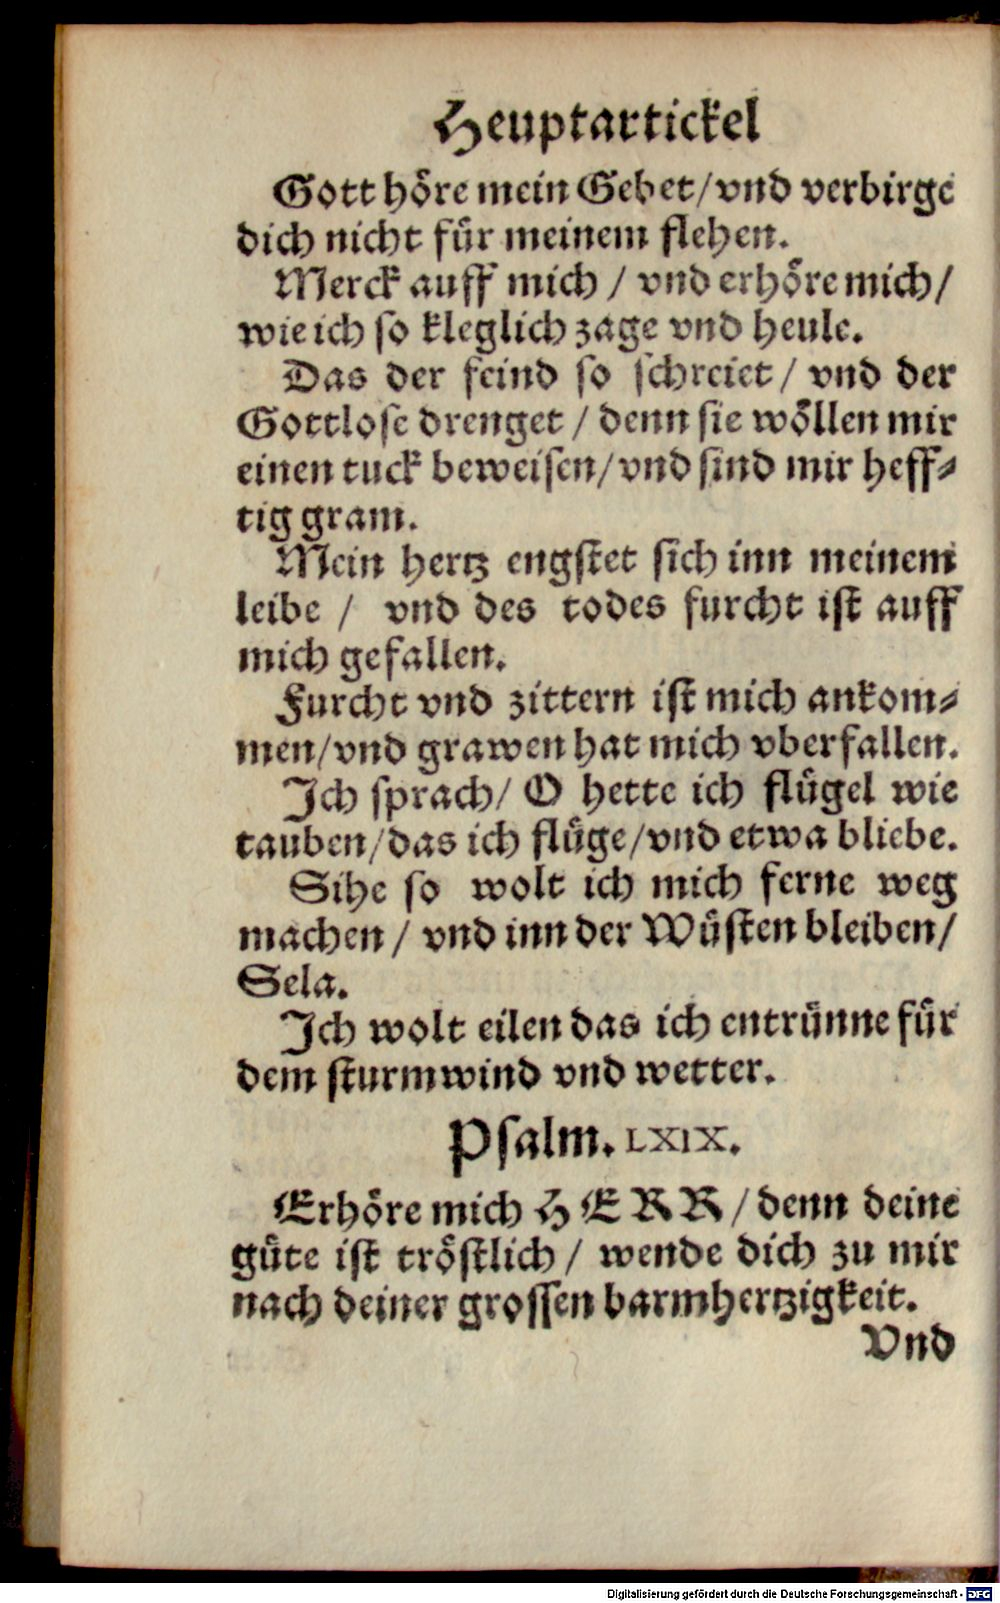 Heuptartickel
Gott höre mein Gebet/vnd verbirge
dich nicht für meinem flehen.
Merck auff mich / vnd erhöre mich/
wie ich so kleglich zage vnd heule.
Das der feind so schreiet / vnd der
Gottlose drenget / denn sie wöllen mir
einen tuck beweisen/vnd sind mir heff⸗
tig gram.
Mein hertz engstet sich inn meinem
leibe / vnd des todes furcht ist auff
mich gefallen.
Furcht vnd zittern ist mich ankom⸗
men/vnd grawen hat mich vberfallen.
Ich sprach/ O hette ich flügel wie
tauben/das ich flüge/vnd etwa bliebe.
Sihe so wolt ich mich ferne weg
machen / vnd inn der Wüsten bleiben/
Sela.
Ich wolt eilen das ich entrünne für
dem sturmwind vnd wetter.
Psalm. LXIX.
Erhöre mich HERR / denn deine
güte ist tröstlich / wende dich zu mir
nach deiner grossen barmhertzigkeit.
Vnd
Digitalisierung gefördert durch die Deutsche Forschungsgemeinschaft - DFG